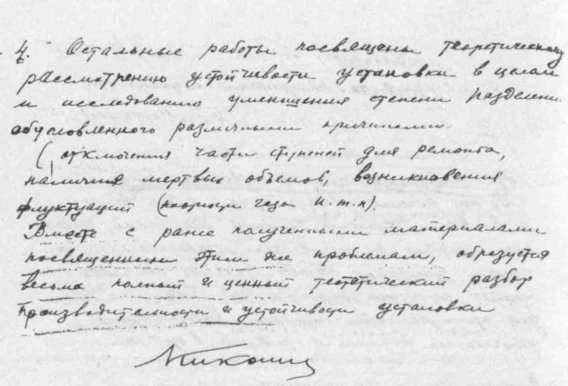 4. Остальные работы посвящены теоретическому
рассмотрению устойчивости установки в целом
и исследованию уменьшения степени разделени
обусловленного различными причинами.
(отключения части ступеней для ремонта,
наличия мертвых объемов, возникновения
флуктуаций газа и.т.п).
Вместе с ранее полученными материалами
посвященными этим же проблемам, образуется
весьма полный и ценный разбор
производительности и устойчивости установки